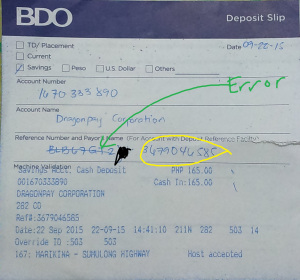 BDO Deposit Slip
TD/ Placement Date 09-22-15
Current
Savings Peso U.S. Dollar Others
Error
Account Number
1670 333 890
Account Name
Dragonpay Corporation
Reference Number and Payor's Name (For Account with Deposit Reference Facility)
3679046585
Machine Validation
Savings Acct. Cash Deposit PHP 165.00
001670333890 Cash In:165.00
DRAGONPAY CORPORATION
282 CO
Ref#:3679046585
Date:22 Sep 2015 22-09-15 14:41:10 211N 282 503 14
Override ID :503 503
167: MARIKINA - SUMULONG HIGHWAY Host accepted